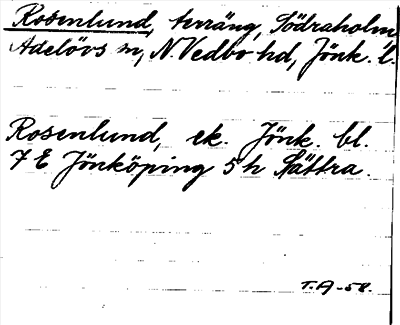 Rosenlund, terräng, Södraholm
Adelövs sn, N. Vedbo hd, Jönk. l.
Rosenlund, ek. Jönk. bl.
7 E Jönköping 5 h Sättra.
T.A -58.